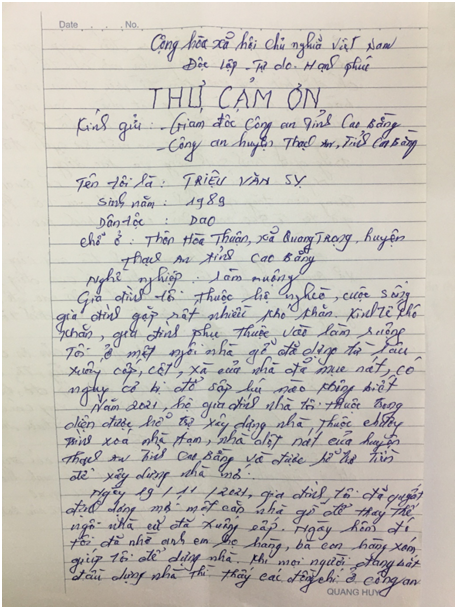 Date No.
Cộng hòa xã hội chủ nghĩa Việt Nam
Độc lập - Tự do. Hạnh phúc
THƯ CẢM ƠN
Kính gửi : - Giám đốc Công an Tỉnh Cao Bằng
- Công an huyện Thạch An, Tỉnh Cao Bằng
Tên tôi là : TRIỆU VĂN SỴ
Sinh năm : 1989
Dân tộc : DAO
chỗ ở : Thôn Hòa Thuận, xã Quang Trọng, huyện
Thạch An tỉnh Cao Bằng
Nghề nghiệp : Làm ruộng
Gia đình tôi thuộc hộ nghèo, cuộc sống
gia đình gặp rất nhiều khó khăn. Kinh tế khó
khăn, gia đình phụ thuộc vào làm ruộng
Tôi ở một ngôi nhà gỗ đã dựng từ lâu
xuống cấp, cột, xà của nhà đã mục nát, có
nguy cơ bị đổ sập lúc nào không biết
Năm 2021, hộ gia đình nhà tôi thuộc trong
diện được hỗ trợ xây dựng nhà, thuộc chương
trình xóa nhà tạm, nhà dột nát của huyện
Thạch An Tỉnh Cao Bằng và được hỗ trợ tiền
để xây dựng nhà mới.
Ngày 19 / 11 / 2021, gia đình tôi đã quyết
định dựng mới một căn nhà gỗ để thay thế
ngôi nhà cũ đã xuống cấp. Ngày hôm đó
tôi đã nhờ anh em họ hàng, bà con hàng xóm
giúp tôi để dựng nhà. Khi mọi người đang bắt
đầu dựng nhà thì thấy các đồng chí ở công an
QUANG HUY